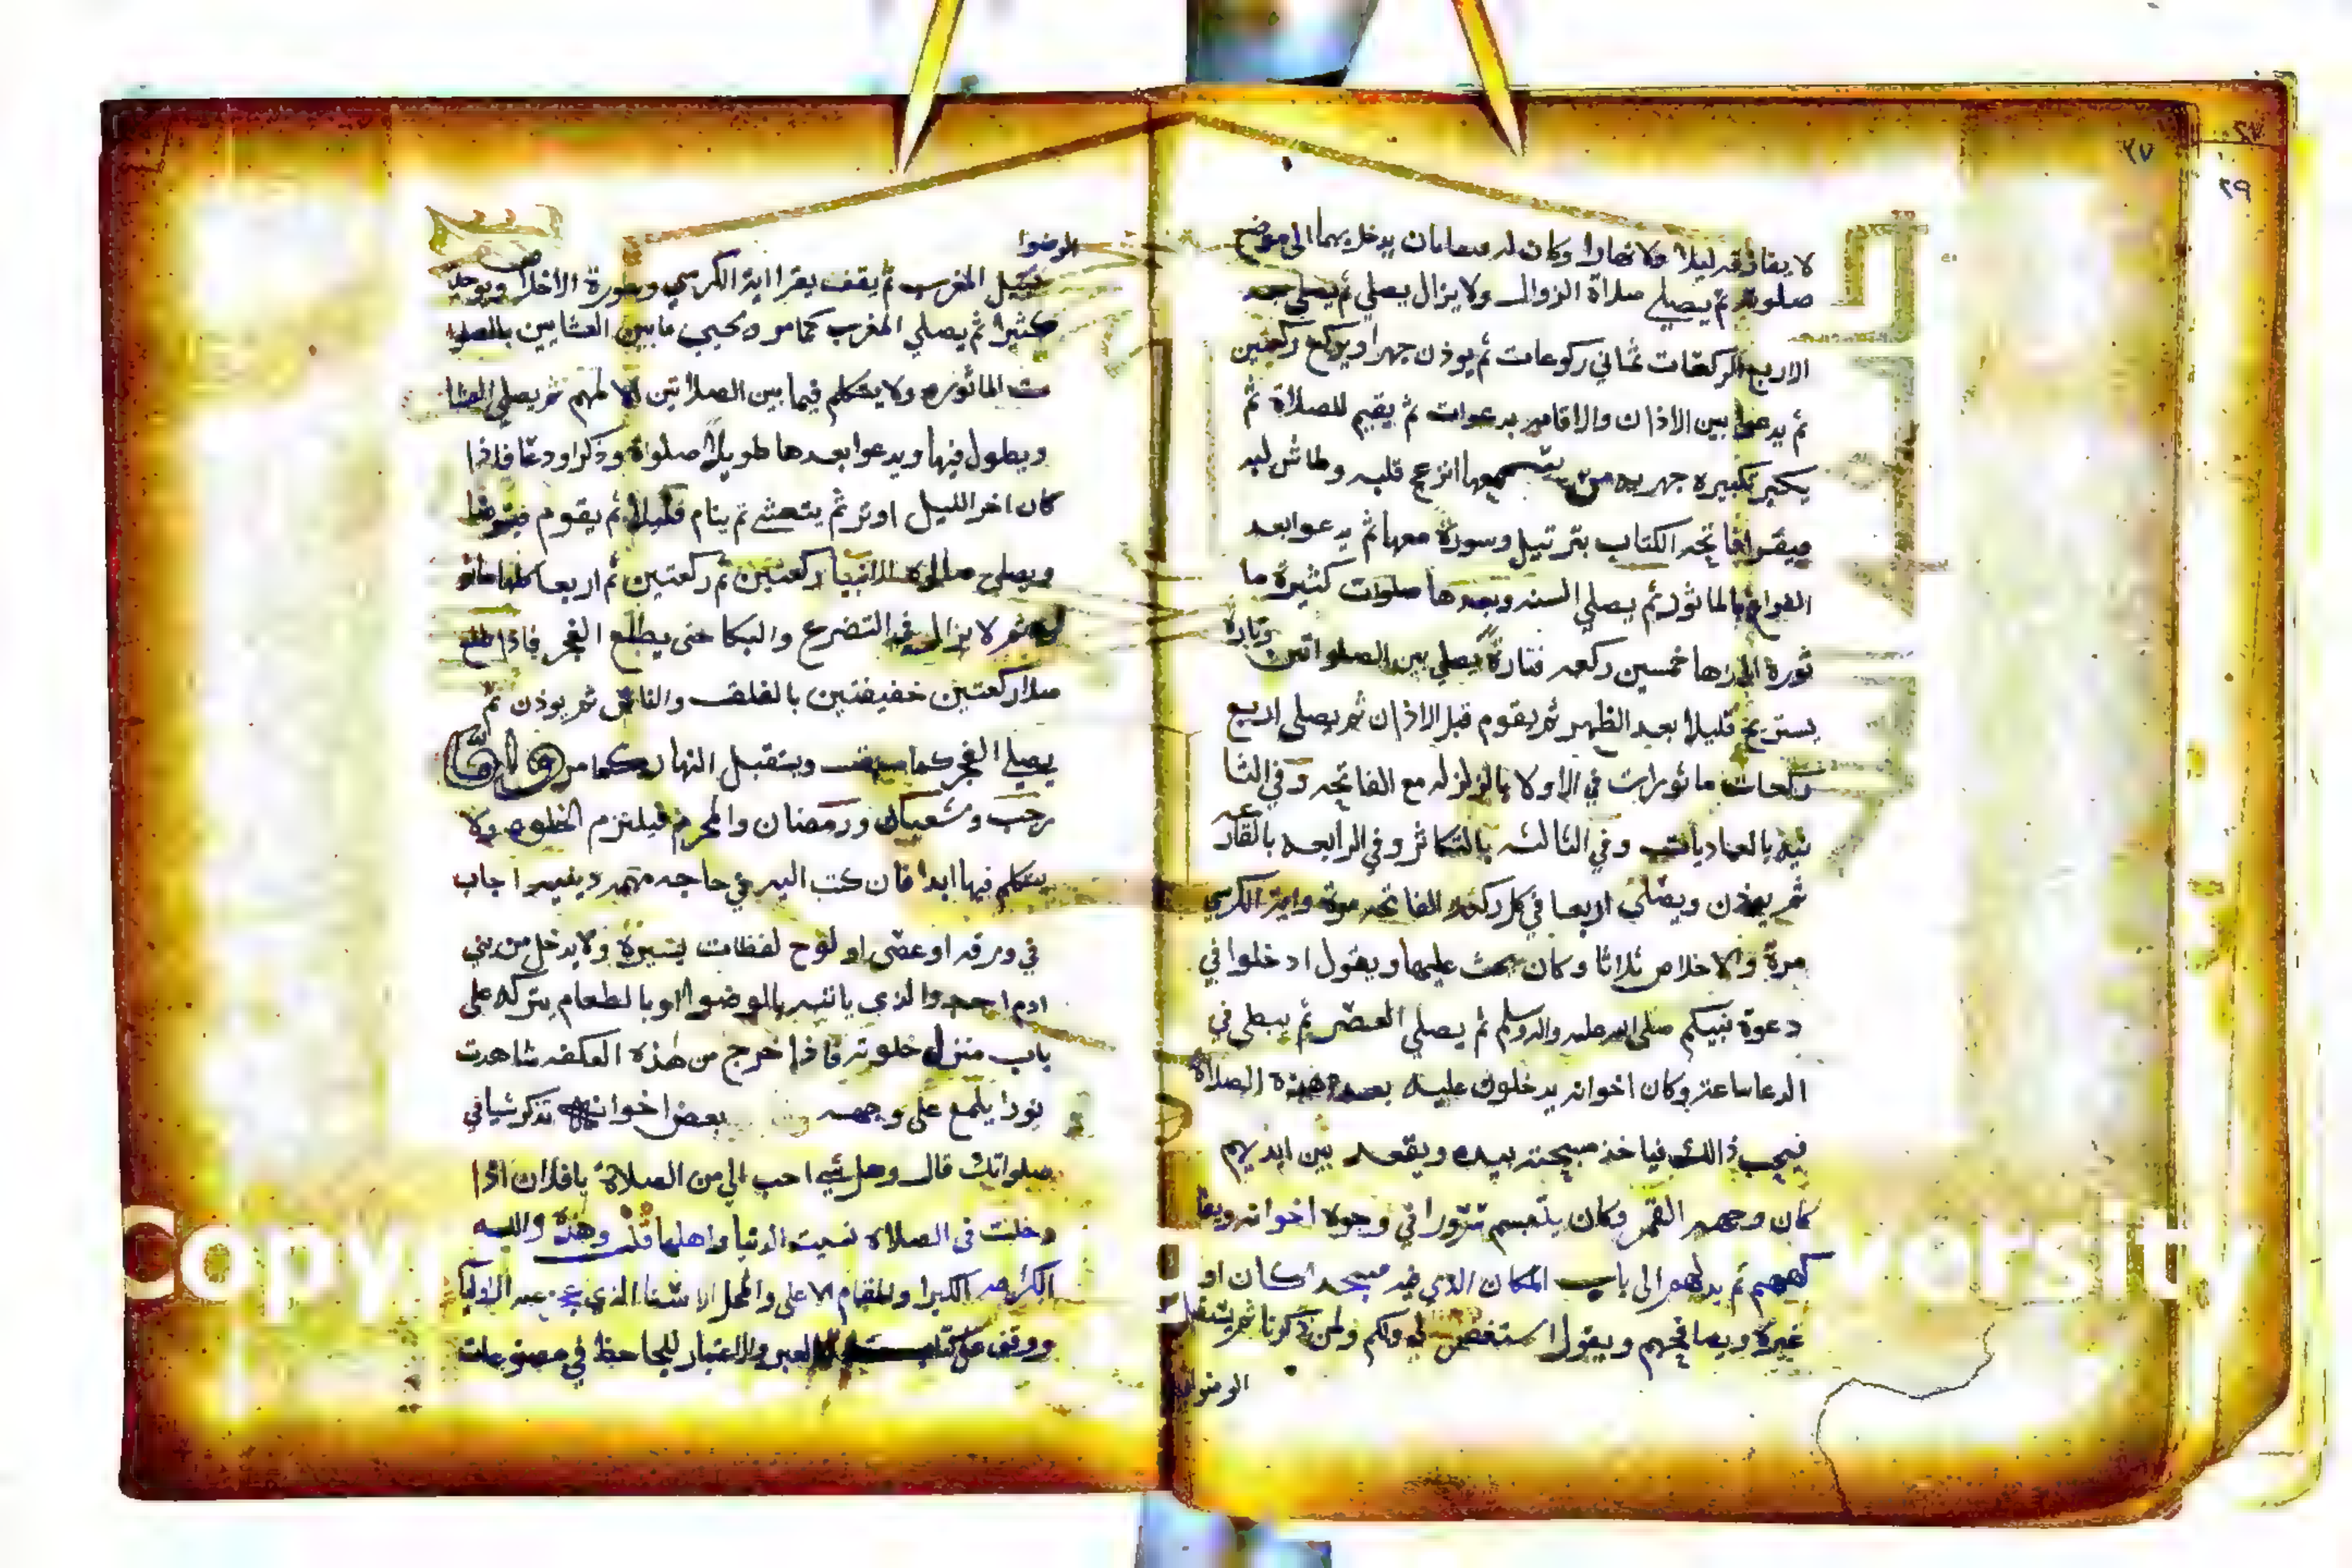 ٢٧
٢٩
لا يفارقه ليلا ولا نهارا وكان له يدخل بهما الى موضع
صلوته ثم يصلي صلاة الزوال ولا يزال يصلي ثم يصلي
الاربع الركعات ثماني ركوعات ثم يوذن جهرا ويركع ركعتين
ثم يدعوا بين الاذان والاقامه بدعوات ثم يقيم للصلاة ثم
يكبر تكبيره جهريه من يسمعها انزعج قلبه وطاش لبه
فيقرا فاتحه الكتاب بترتيل وسورة معها ثم يدعوا بعد
الفراغ بالماثور ثم يصلي السنه وبعدها صلوات كثيرة ما
ثورة خمسين ركعه فتارة يصلي بين الصلواتين وتارة
يستريح قليلا بعد الظهر ثم يقوم قبل الاذان ثم يصلي اربع
ركعات ماثورات في الاولا بالزلزله مع الفاتحه وفي الثا
نيه بالعاديات وفي الثالثه بالتكاثر وفي الرابعه بالقارعه
ثم يوذن ويصلي اربعا في كل ركعه الفاتحه مرة واية الكرسي
مرة والاخلاص ثلاثا وكان يحث عليها ويقول ادخلوا في
دعوة نبيكم صلى الله عليه واله وسلم ثم يصلي العصر ثم يبطي في
الدعا ساعة وكان اخوانه يدخلون عليه بعد هذه الصلاة
فيحب ذالك فياخذ مسبحته بيده ويقعد بين ايديهم
كان وجهه القمر وكان يتبسم في وجوه اخوانه ويفا
كههم ثم الى باب المكان الذي فيه مسجدا كان او
غيرة ويصافحهم ويقول استغفر لي ولكم ثم يشتغل
الوضوا
الوضوا
قبيل المغرب ثم يقف يقرا اية الكرسي وسورة الاخلاص ويوحد
كثيرا ثم يصلي المغرب كما مر ويحيي ما بين العشايين بالصلوا
ت الماثوره ولا يتكلم فيما بين الصلاتين الا لمهم ثم يصلي العشا
ويطول فيها ويدعوا بعدها طويلا صلواة وذكرا ودعا فاذا
كان اخر الليل اوتر ثم يتعشى ثم ينام قليلا ثم يقوم فيتوضا
ويصلي صلوة الانبيا ركعتين ثم ركعتين ثم اربعا
ثم لا يزال في التضرع والبكا حتى يطلع الفجر فاذا طلع
صلا ركعتين خفيفتين بالفلق والناس ثم يوذن ثم
يصلي الفجر كما ويستقبل النهار كما مر واما
رجب وشعبان ورمضان والمحرم فيلتزم الخلوه ولا
يتكلم فيها ابدا فان كتب اليه في حاجه مهمه دينيه اجاب
في ورقه او عصى او لوح لفظات يسيرة ولا يدخل من بني
ادم احد والذي ياتيه بالوضوا او بالطعام يتركه على
باب منزل خلوته فاذا خرج من هذه العكفه شاهدت
نورا يلمع على وجهه بعض اخوانه تذكر شيا في
صلواتك قال وهل شي احب الي من الصلاة يا فلان اذا
دخلت في الصلاة نسيت الدنيا واهلها قلت وهذه والله
الكرامه الكبرا والمقام الاعلى والمحل الاسنا الذي عجز عنه الاوليا
ووقف على كتاب العبر والاعتبار للجاحظ في مصنوعات
Copy
versity